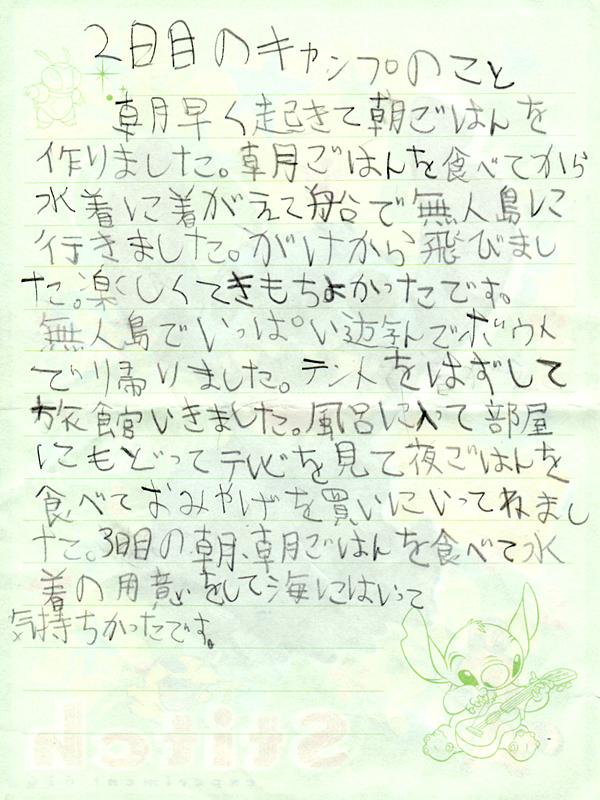 2日目のキャンプのこと
朝早く起きて朝ごはんを
作りました。朝ごはんを食べてから
水着に着がえて船で無人島に
行きました。がけから飛びまし
た。楽しくてきもちよかったです。
無人島でいっぱい遊んでボウト
でり帰りました。テントをはずして
旅館いきました。風呂に入って部屋
にもどってテレビを見て夜ごはんを
食べておみやげを買いにいってねまし
た。3日目の朝、朝ごはんを食べて水
着の用意をして海にはいって
気持ちかったです。
Stitch
experiment